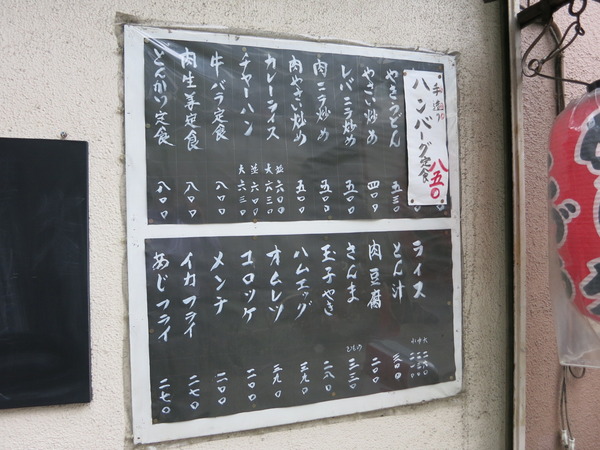 手造り
ハンバーグ定食 八五〇
やきうどん 五五〇
やさい炒め 四〇〇
レバニラ炒め 五〇〇
肉ニラ炒め 五〇〇
肉やさい炒め 五〇〇
カレーライス 並六〇〇 大六三〇
チャーハン 並六〇〇 大六三〇
牛バラ定食 八〇〇
肉生姜定食 八〇〇
とんかつ定食 八〇〇
ライス
とん汁 三〇〇
肉豆腐 二〇〇
さんま ひもの 三三〇
玉子やき 二八〇
ハムエッグ 三九〇
オムレツ 三九〇
コロッケ 二〇〇
メンチ 二〇〇
イカフライ 二七〇
あじフライ 二七〇